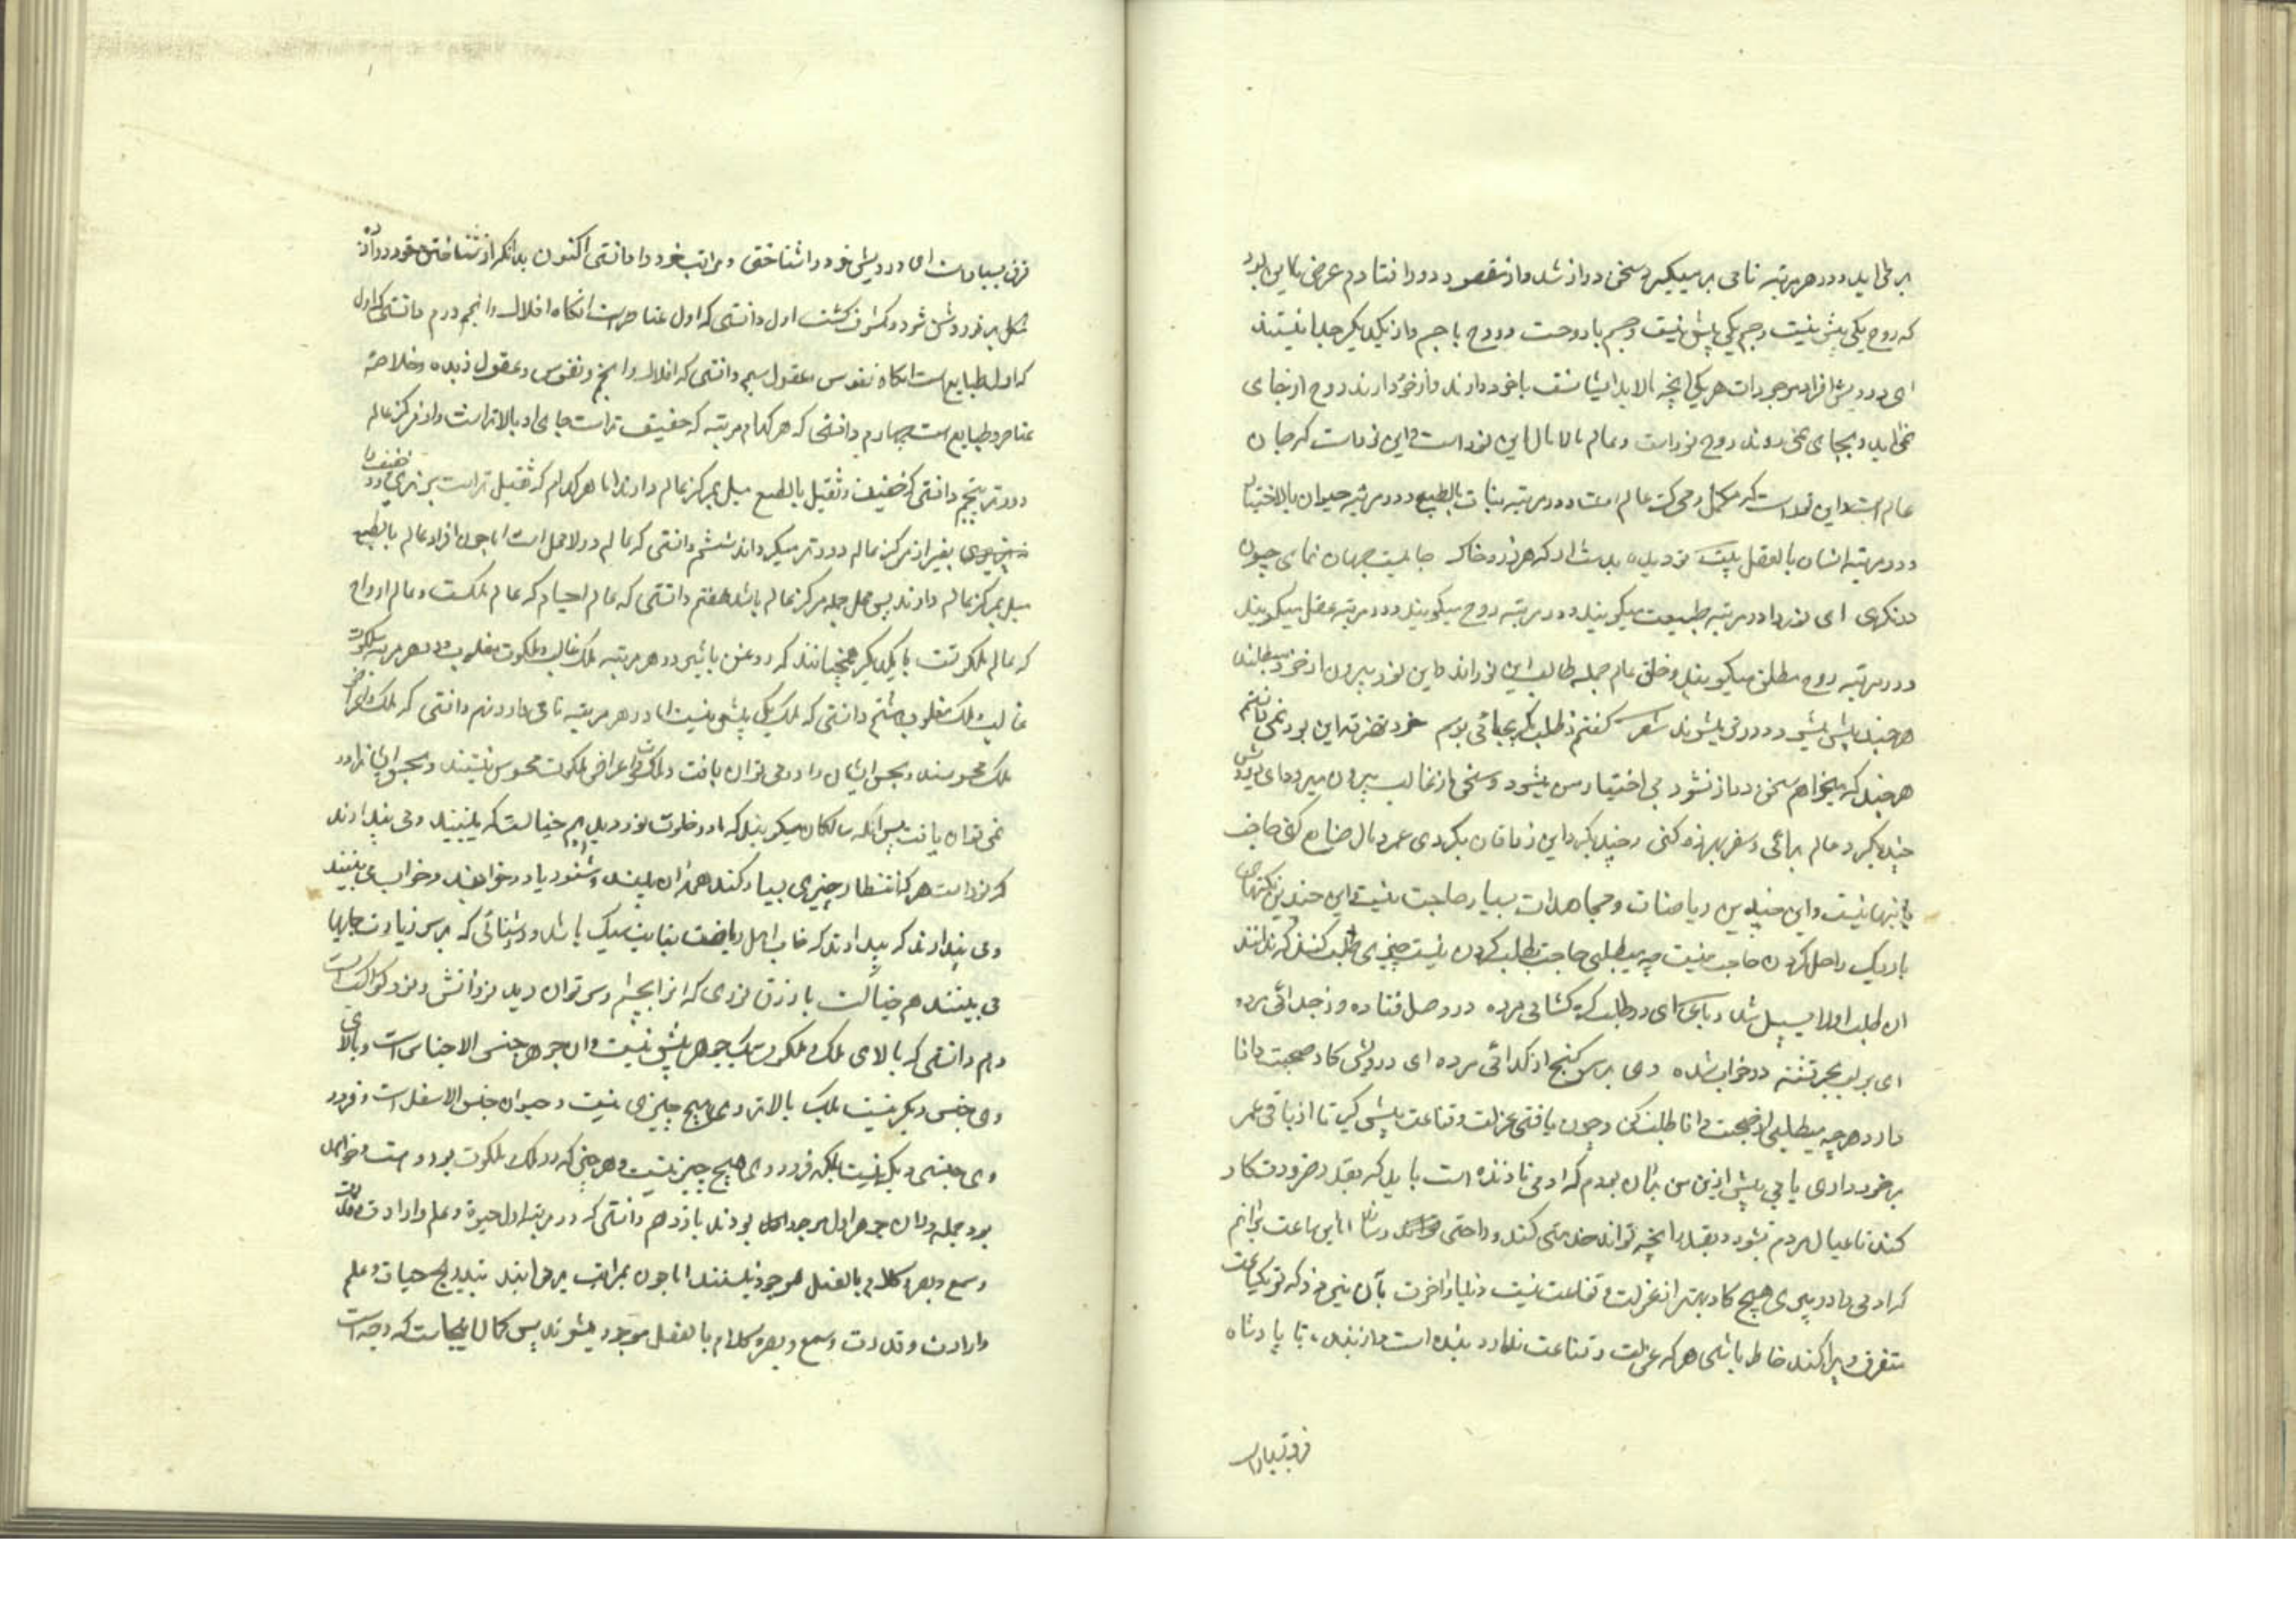 بر می اید و در هر مرتبه نامی بر میگیرد سخن دراز شد و از مقصود دور افتادم عرض ما این بود
که روح یکی بیش نیست و جسم یکی بیش نیست و جسم با روحست و روح با جسم و از یکدیگر جدا نیستند
ای درویش افراد موجودات هر یکی انچه مالابد ایشانست با خود دارند و از خود دارند روح از جای
نمی اید و بجای نمی رود روح نور است و عالم مالامال این نور است و این نور است که جان
عالم است و این نور است که مکمل و محرک عالم است و در مرتبه نبات بالطبع و در مرتبه حیوان بالاختیار
و در مرتبه انسان بالعقل بیت رو دیده بدست ار که هر ذره خاک جامیست جهان نمای چون
درنگری ای نور را در مرتبه طبیعت میگویند و در مرتبه روح میگویند و در مرتبه عقل میگویند
و در مرتبه روح مطلق میگویند و خلق عالم جمله طالب این نوراند و این نور بیرون از خود میطلبند
هر چند بیش میشود دورتر میشوند شعر گفتم بطلب مگر بجائی برسم خود تفرقه این بود نمی دانستم
هر چند که میخواهم سخن دراز نشود بی اختیار من میشود و سخن از غالب بیرون میرود ای درویش
چند گرد عالم برائی و سفر بهرزه کنی و چند گرد این و ان بگردی عمر و مال ضایع کنی حاجت
باینها نیست و این چندین ریاضات و مجاهدات بسیار حاجت نیست این چندین نکتهای
باریک راحل کردن حاجت نیست چه میطلبی حاجت بطلب کردن نیست چیزی طلب کنند که ندانند
ان طلب اولا سبیل شد رباعی ای در طلب گره گشائی مرده در وصل فتاده وز جدائی مرده
ای بر لب بحر تشنه در خواب شده وی بر سر گنج از گدائی مرده ای درویش کار صحبت دانا
دارد هر چه میطلبی از صحبت دانا طلب کن و چون یافتی عزلت و قناعت پیش گیر تا از باقی عمر
برخورداری یابی پیش ازین من بران بودم که ادمی تا زنده است باید که بقدر ضرورت کار
کند تا عیال مردم نشود و بقدر انچه تواند خدمتی کند و راحتی رساند اما این ساعت برانم
که ادمی را در پیری هیچ کار بهتر از عزلت و قناعت نیست دنیا و اخرت بآن نمی ارزد که تو یکساعت
متفرق و پراکنده خاطر باشی هر که عزلت و قناعت ندارد بنده است و از بنده تا پادشاه
فرق بسیار است
فرق بسیار است ای درویش خود را شناختی و مراتب خود را دانستی اکنون بدانکه از شناختن خود در آن
مشکل بر خود روشن شود و مکشوف گشت اول دانستی که اول عناصر است انگاه افلاک و انجم دوم دانستی که اول
که اول طبایع است انگاه نفوس و عقول سیم دانستی که افلاک و انجم و نفوس و عقول زبده و خلاصه
عناصر و طبایع است چهارم دانستی که هر کدام مرتبه که خفیف تر است جای او بالاتر است و از مرکز عالم
دورتر پنجم دانستی که خفیف و ثقیل بالطبع میل بمرکز عالم دارند اما هر کدام که ثقیل تر است
بغیر از مرکز عالم دورتر میگرداند ششم دانستی که عالم در لامحل است اما چون افراد عالم بالطبع
میل بمرکز عالم دارند پس محل جمله مرکز عالم باشد هفتم دانستی که عالم اجسام که عالم ملکست و عالم ارواح
که عالم ملکوتست با یکدیگر همچنانند که روغن با شیر و در هر مرتبه ملک غالب و ملکوت مغلوب و در هر مرتبه ملکوت
غالب و ملک مغلوب هشتم دانستی که ملک یک بیش نیست اما در هر مرتبه نامی دارد نهم دانستی که ملک و اعراض
ملک محسوسند و بحس ایشان را در می توان یافت و ملکوت و اعراض ملکوت محسوس نیستند و بحس ایشانرا در
نمی توان یافت پس انکه سالکان میگویند که ما در خلوت نور دیدیم خیالست که میبینند و می پندارند
که نور است هر که انتظار چیزی بسیار کند همه ان بیند و شنود یا در خواهند و خواب می بینند
و می پندارند که بیدارند که خواب اهل ریاضت بغایت سبک باشد و روشنائی که بر سر زیارت جایها
می بینند هم خیالست باور نکن نوری که انرا بچشم سر توان دید نور اتش و نور کواکبست
دهم دانستی که بالای ملک و ملکوت یک جوهر بیش نیست و ان جوهر جنس الاجناس است و بالای
وی جنس دیگر نیست بلکه بالاتر وی هیچ چیزی نیست و حیوان جنس الاسفل است و فرود
وی جنسی دیگر نیست بلکه فرود وی هیچ چیز نیست و هر چیز که در ملک و ملکوت بود و هست و خواهد
بود جمله در ان جوهر اول موجود بودند یازدهم دانستی که در مرتبه اول حیوة و علم و ارادت و قدرت
و سمع و بصر و کلام بالفعل موجود نیستند اما چون بمراتب بر می ایند بتدریج حیات و علم
و ارادت و قدرت و سمع و بصر و کلام بالفعل موجود میشوند پس کمال اینجاست که